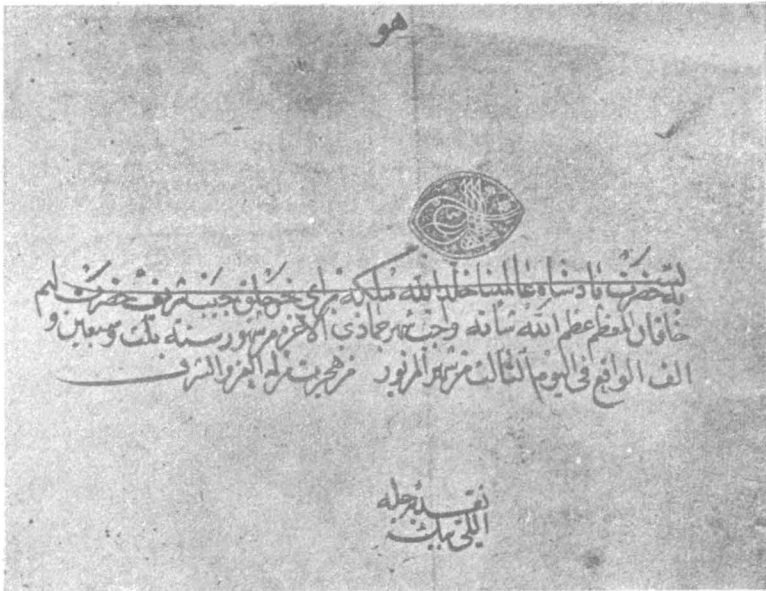 هو
حضرت پادشاه عالمپناه خلد الله ملكه برای خرجلق جیب شریف حضرت
خاقان المعظم عظم الله شانه واجب شهر جمادی الآخره من شهور سنه ثلث وسبعین و
الف الواقع فی الیوم الثالث من شهر المزبور من هجریت من له العز والشرف
نقدیه جمله
اللی بیك